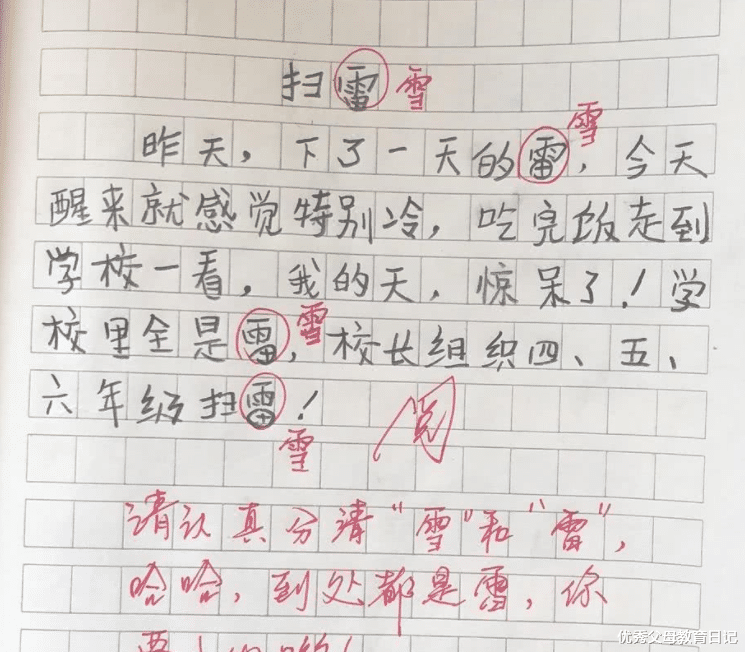 扫雷雪
雪
昨天，下了一天的雷，今天
醒来就感觉特别冷，吃完饭走到
学校一看，我的天，惊呆了！学
校里全是雷，雪校长组织四、五、
六年级扫雷！
阅
雪
请认真分请“雪”和“雷”，
哈哈，到处都是雷，你
要
优秀父母教育日记